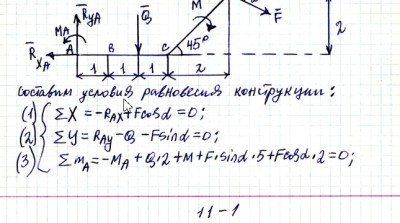 R̅yA
MA
Q̅
M
F̅
R̅xA
A
B
C
45°
2
1
1
1
2
составим условия равновесия конструкции:
(1) ΣX = -RAX + Fcosα = 0;
(2) ΣY = RAy - Q - Fsinα = 0;
(3) Σ mA = -MA + Q·2 + M + F·sinα·5 + Fcosα·2 = 0;
11-1